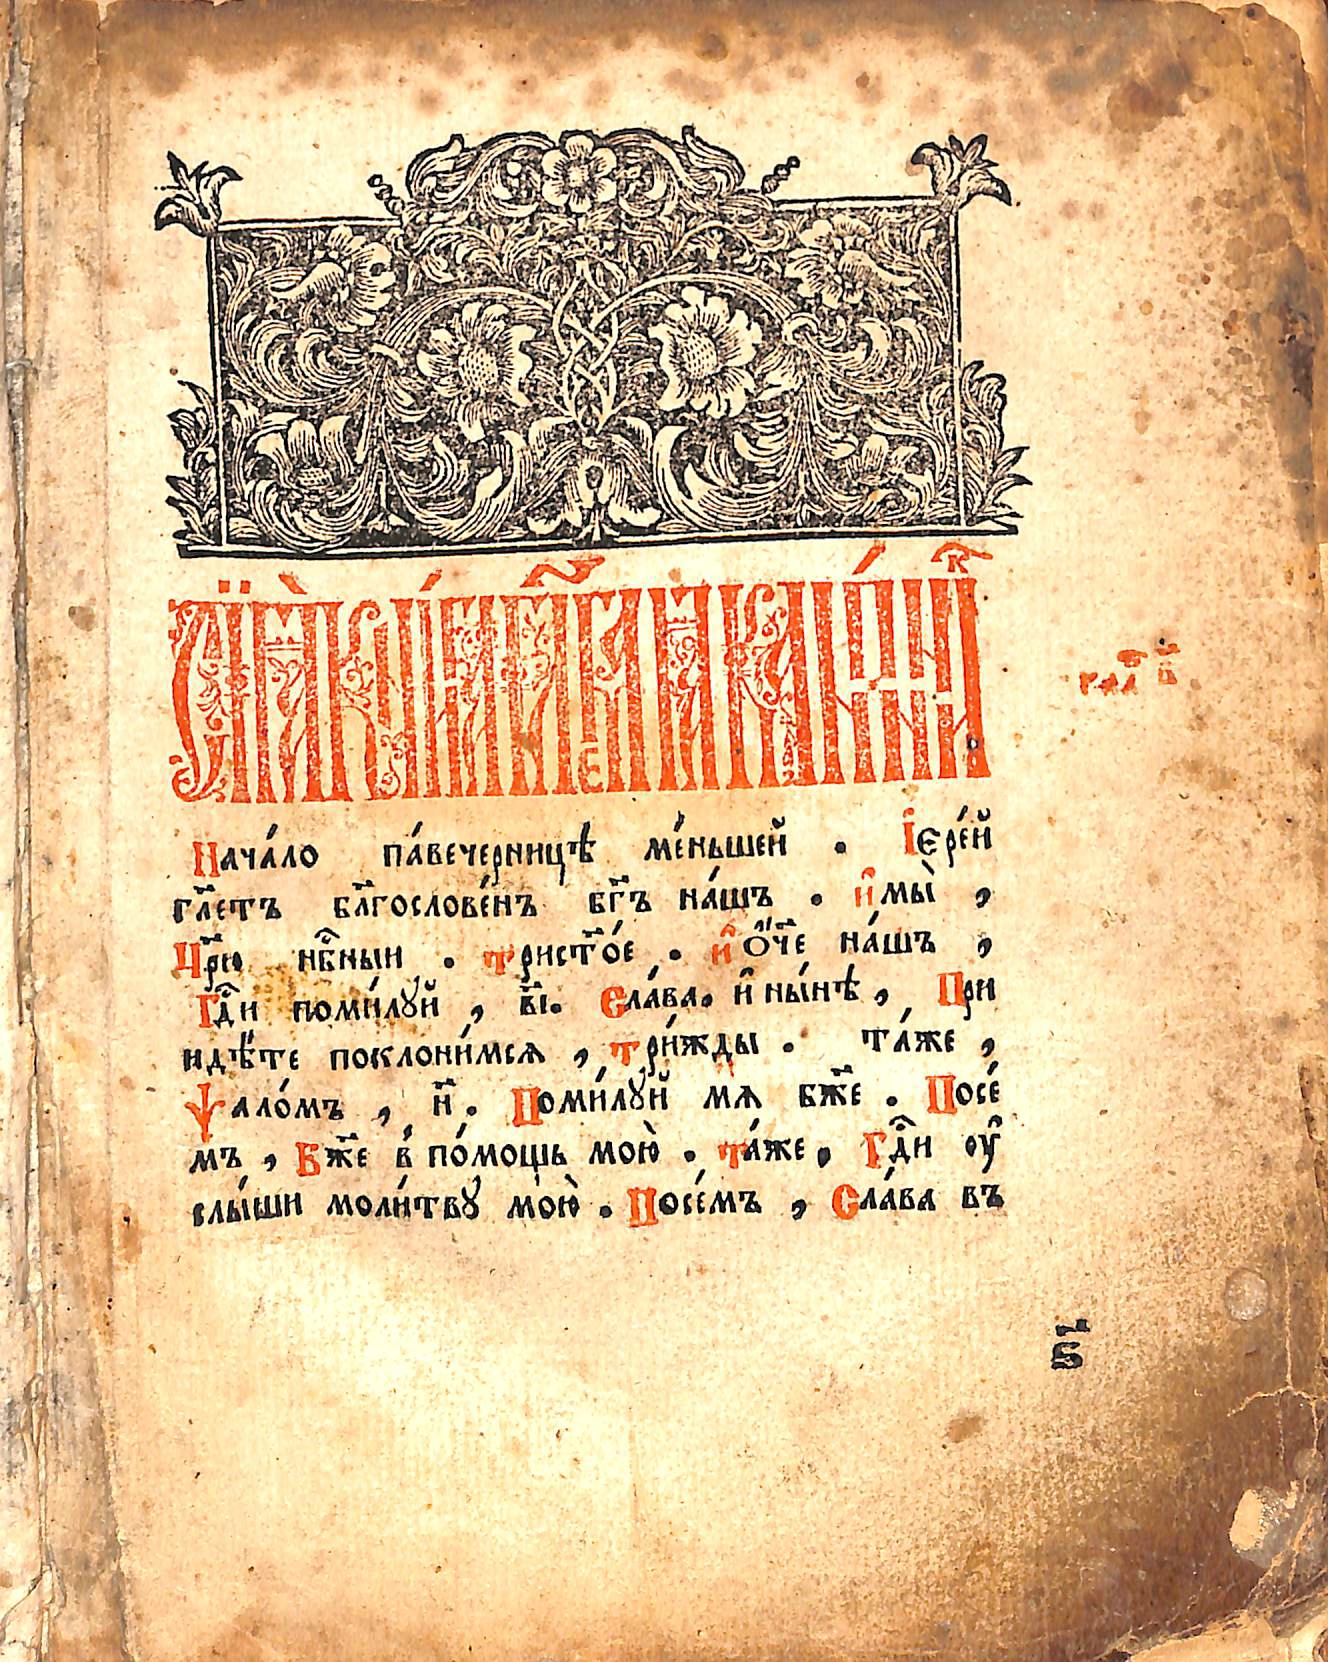 Нача́ло па́вечерницѣ ме́ньшей . І҆ере́й
гл҃етъ бл҃гослове́нъ бг҃ъ на́шъ . и҆мы̀ ,
Цр҃ю нб҃ныи . трист҃о́е . и҆ ѻ҆́ч҃е на́шъ ,
Гд҃и поми́лꙋй , в҃і. Сла́ва. и҆ ны́нѣ , При
идѣ́те поклони́мсѧ , три́жды . та́же ,
Ѱало́мъ , н҃. Поми́лꙋй мѧ бж҃е . Посе́
мъ , Бж҃е в по́мощь мою̀ . та́же , Гд҃и оу҆
слы́ши моли́твꙋ мою̀ . Посе́мъ , Сла́ва въ